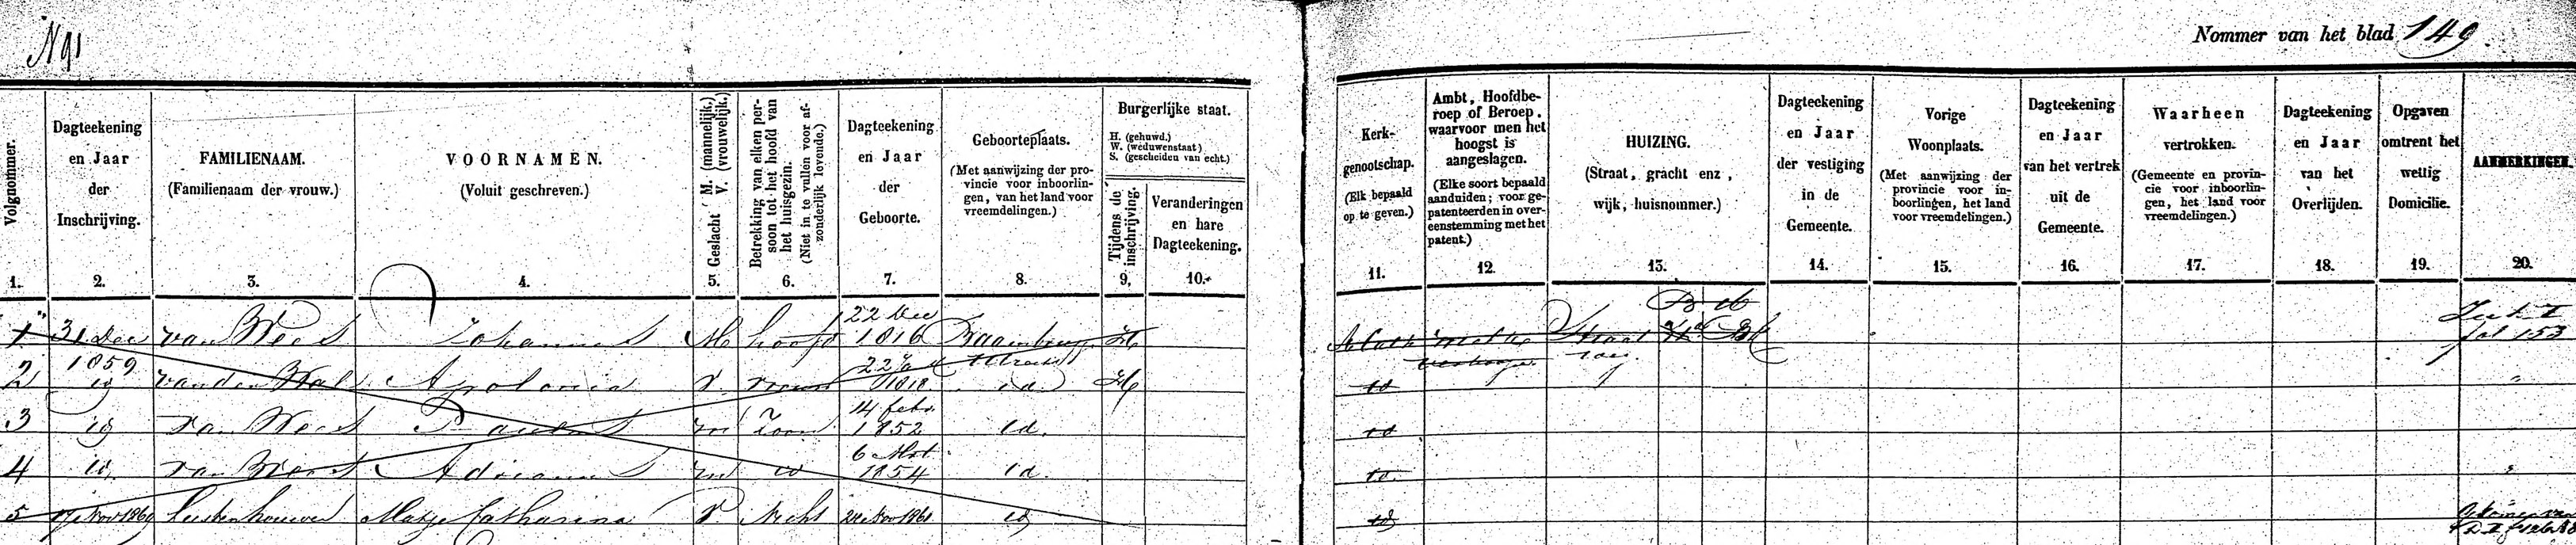 N 91
Nommer van het blad 149.
Volgnommer.
1.
Dagteekening
en Jaar
der
Inschrijving.
2.
FAMILIENAAM.
(Familienaam der vrouw.)
3.
VOORNAMEN.
(Voluit geschreven.)
4.
Geslacht M. (mannelijk.)
V. (vrouwelijk.)
5.
Betrekking van elken per-
soon tot het hoofd van
het huisgezin.
(Niet in te vullen voor af-
zonderlijk levende.)
6.
Dagteekening
en Jaar
der
Geboorte.
7.
Geboorteplaats.
(Met aanwijzing der pro-
vincie voor inboorlin-
gen, van het land voor
vreemdelingen.)
8.
Burgerlijke staat.
H. (gehuwd.)
W. (weduwenstaat)
S. (gescheiden van echt.)
Tijdens de
inschrijving.
9.
Veranderingen
en hare
Dagteekening.
10.
Kerk-
genootschap.
(Elk bepaald
op te geven.)
11.
Ambt, Hoofdbe-
roep of Beroep,
waarvoor men het
hoogst is
aangeslagen.
(Elke soort bepaald
aanduiden; voor ge-
patenteerden in over-
eenstemming met het
patent.)
12.
HUIZING.
(Straat, gracht enz,
wijk, huisnommer.)
13.
Dagteekening
en Jaar
der vestiging
in de
Gemeente.
14.
Vorige
Woonplaats.
(Met aanwijzing der
provincie voor in-
boorlingen, het land
voor vreemdelingen.)
15.
Dagteekening
en Jaar
van het vertrek
uit de
Gemeente.
16.
Waarheen
vertrokken.
(Gemeente en provin-
cie voor inboorlin-
gen, het land voor
vreemdelingen.)
17.
Dagteekening
en Jaar
van het
Overlijden.
18.
Opgaven
omtrent het
wettig
Domicilie.
19.
AANMERKINGEN.
20.
1 31 Dec van Wees Johannes M hoofd 22 Dec 1816 H
1859
2 id van der Wal Apolonia V vrouw 1818 id H id
3 id van Wees Paulus m Zoon 14 febr. 1852 id. id
4 id. van Wees Adrianus m id 6 1854 id. id.
fol 153
5 17 Nov 1869 Catharina V Nicht 24 Nov 1861 id id